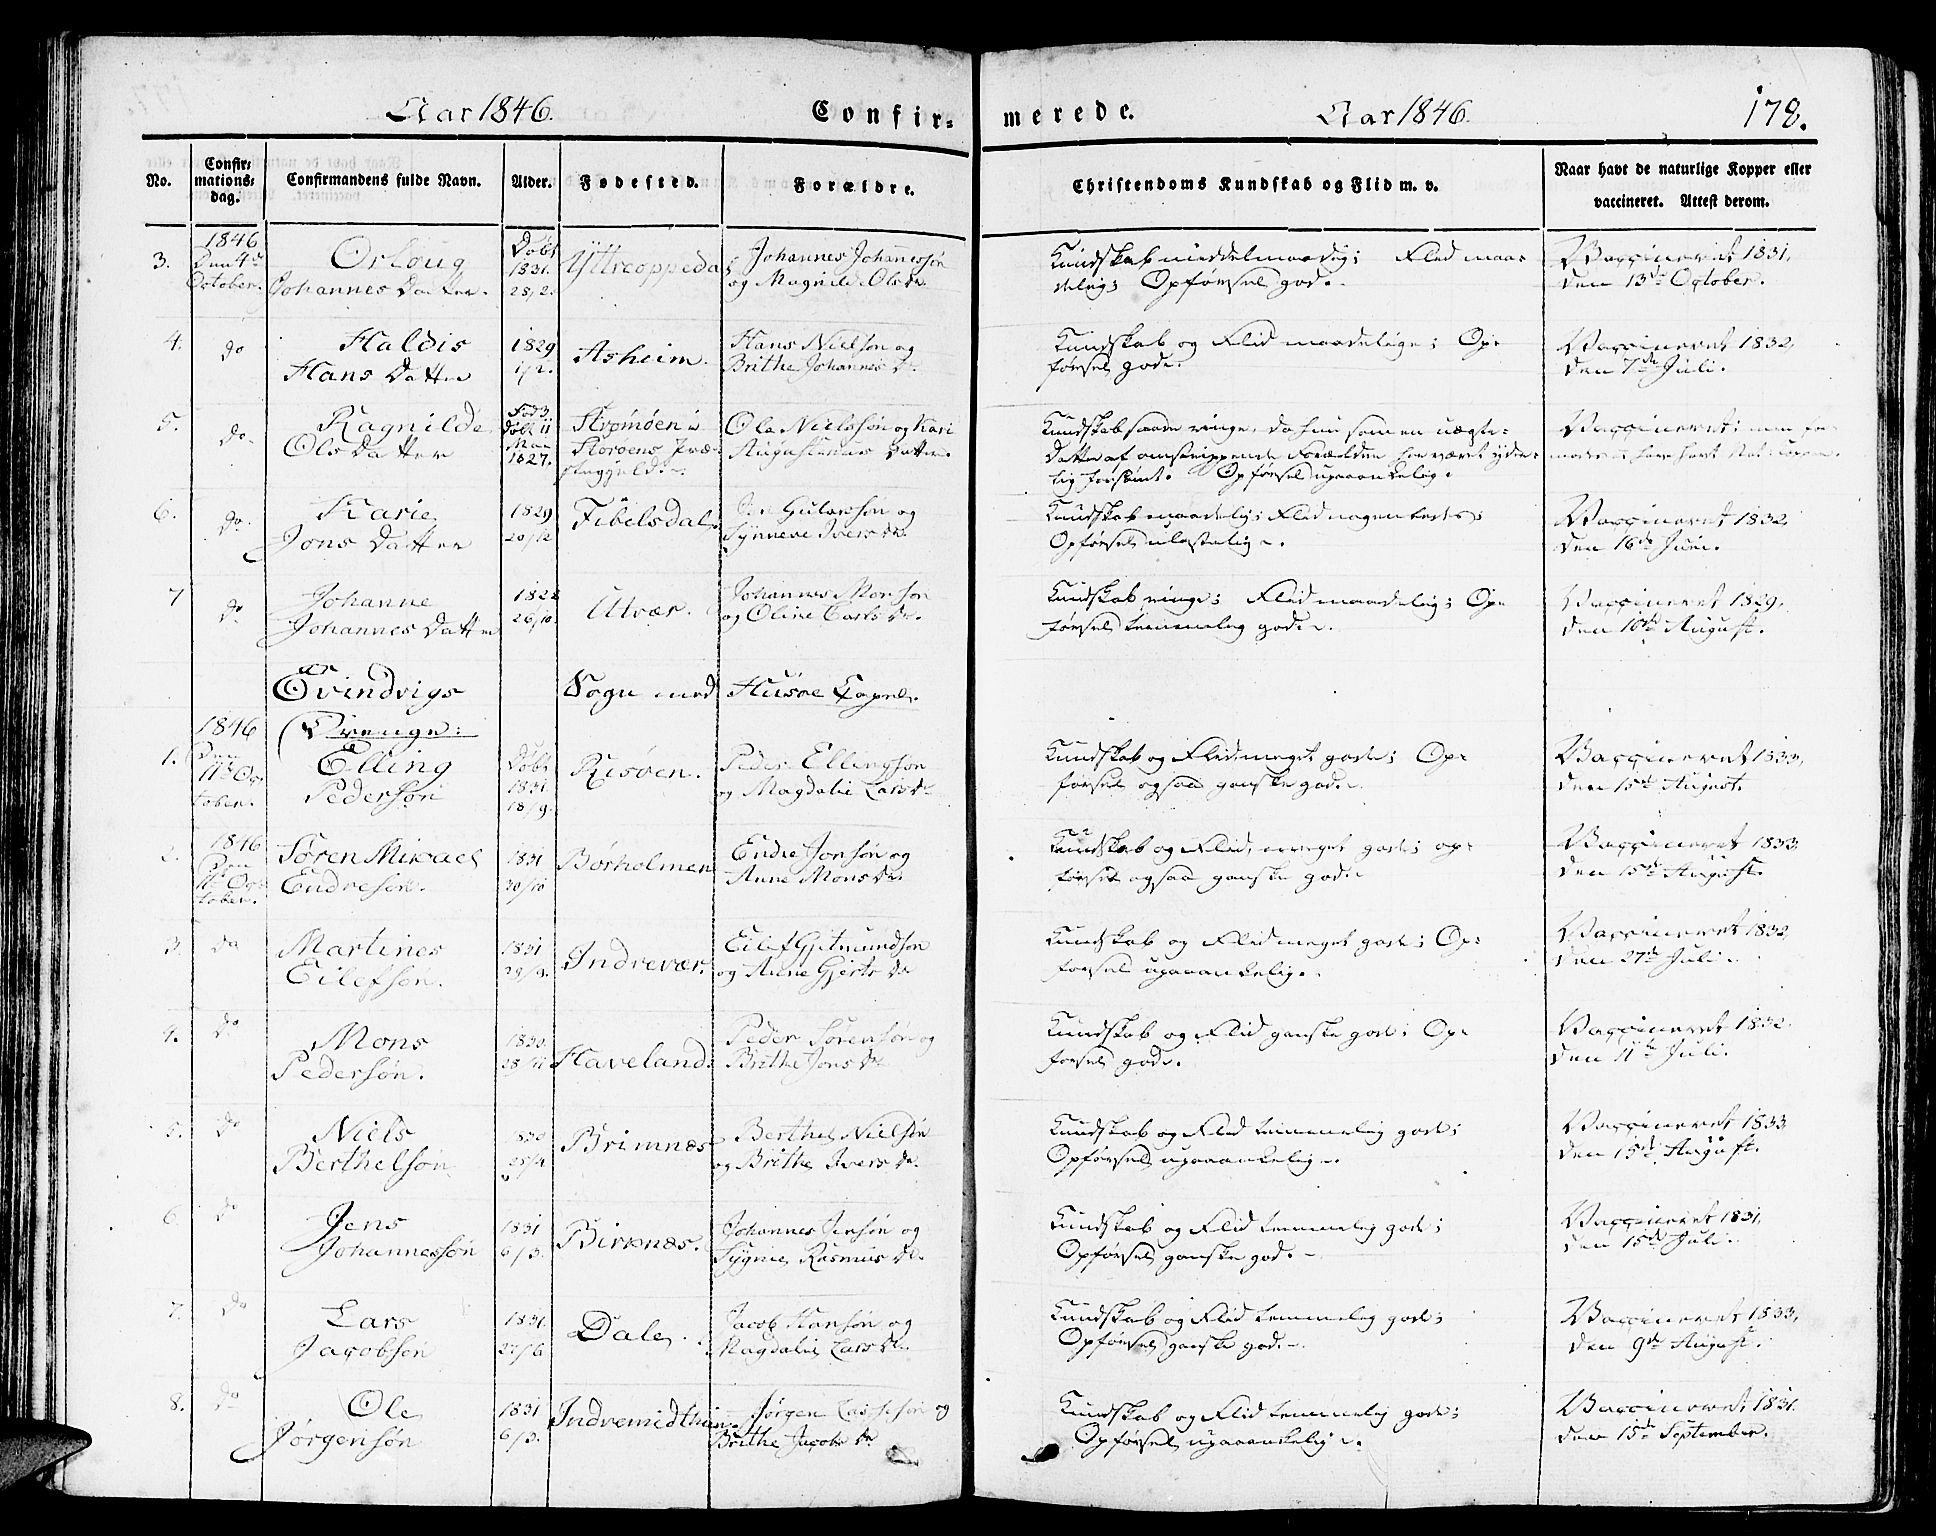 Aar 1846. Confir= merede. Aar 1846. 178.
No. Confir= mations= dag. Confirmandens fulde Navn. Alder. Fødested. Forældre. Christendoms Kundskab og Flid m. v. Naar havt de naturlige Kopper eller vaccineret. Attest derom.
3. 1846 Den 4de October. Orloug Johannes Datter. Døbt 1831. 25/2. Yttreoppedal Johannes Johannessøn og Magnild Ols Dr. Kundskab middelmaadig; Flid maadelig; Opførsel god. Vaccineret 1831, den 13de October.
4. do Haldis Hans Datter 1829 1/2. Asheim. Hans Nielsøn og Brithe Johannes Dr. Kundskab og Flid maadelige; Opførsel god. Vaccineret 1832, den 7de Juli.
5. do Ragnilde Ols Datter Død 11 Mai 1827. Strømøen i Ola Nielssøn og Kari Augustinus Datter. Kundskab saare ringe, da hun som en uægte Datter af omstrippende Forældre har været forsømt. Opførsel upaaankelig. Vaccineret; men
6. do. Karie Jons Datter 1829 20/12 Fibelsdal. Jon og Synneve Ivers Dr. Kundskab maadelig; Flid nogenledes; Opførsel ulastelig. Vaccineret 1832, den 16de Juni.
7 do. Johanne Johannes Datter 1828 26/10. Utvær. Johannes Monsøn og Oline Carls Dr. Kundskab ringe; Flid maadelig; Opførsel temmelig god. Vaccineret 1829, den 10de August.
Evindvigs Sogn med Husøe Capel.
Drenge:
1. 1846 Den 11te October. Elling Pedersøn Døbt 1831. 18/9. Risøen. Peder Ellingsøn og Magdalie Lars Dr. Kundskab og Flid meget gode; Opførsel ogsaa ganske god. Vaccineret 1833, den 15de August.
2. 1846 Den 11te October. Søren Mikael Endresøn. 1831 30/10 Børholmen Endre Jonsøn og Anne Mons Dr. Kundskab og Flid meget gode; opførsel ogsaa ganske god. Vaccineret 1833, den 15de August.
3. do Martines Eilefsøn. 1831 29/9. Indrevær. Eilef Gjetmundsøn og Anne Gjerts Dr Kundskab og Flid meget gode; Opførsel upaaankelig. Vaccineret 1832, den 27de Juli.
4. do Mons Pedersøn. 1830 28/11 Haveland. Peder Sørensøn og Brithe Jons Dr Kundskab og Flid ganske gode; Opførsel god. Vaccineret 1832. den 11te Juli.
5. do Niels Berthelsøn 1830 25/4 Brimnæs Berthel Nielsøn og Brithe Ivers Dr. Kundskab og Flid temmelig gode; Opførsel upaaankelig. Vaccineret 1833 den 15de August.
6. do Jens Johannessøn 1831 6/3. Birknæs. Johannes Jensøn og Sygnie Rasmus Dr. Kundskab og Flid temmelig gode; Opførsel ganske god. Vaccineret 1831, den 15de Juli.
7. do Lars Jacobsøn 1831. 27/6 Dale. Jacob Hansøn og Magdalie Lars Dr. Kundskab og Flid temmelig gode; Opførsel ganske god. Vaccineret 1833, den 9de August.
8. do Ole Jørgensøn 1831 6/3. Indremidthun. Jørgen Lassesøn og Brithe Jacobs Dr Kundskab og Flid temmelig gode; Opførsel upaaankelig. Vaccineret 1831. den 15de September.